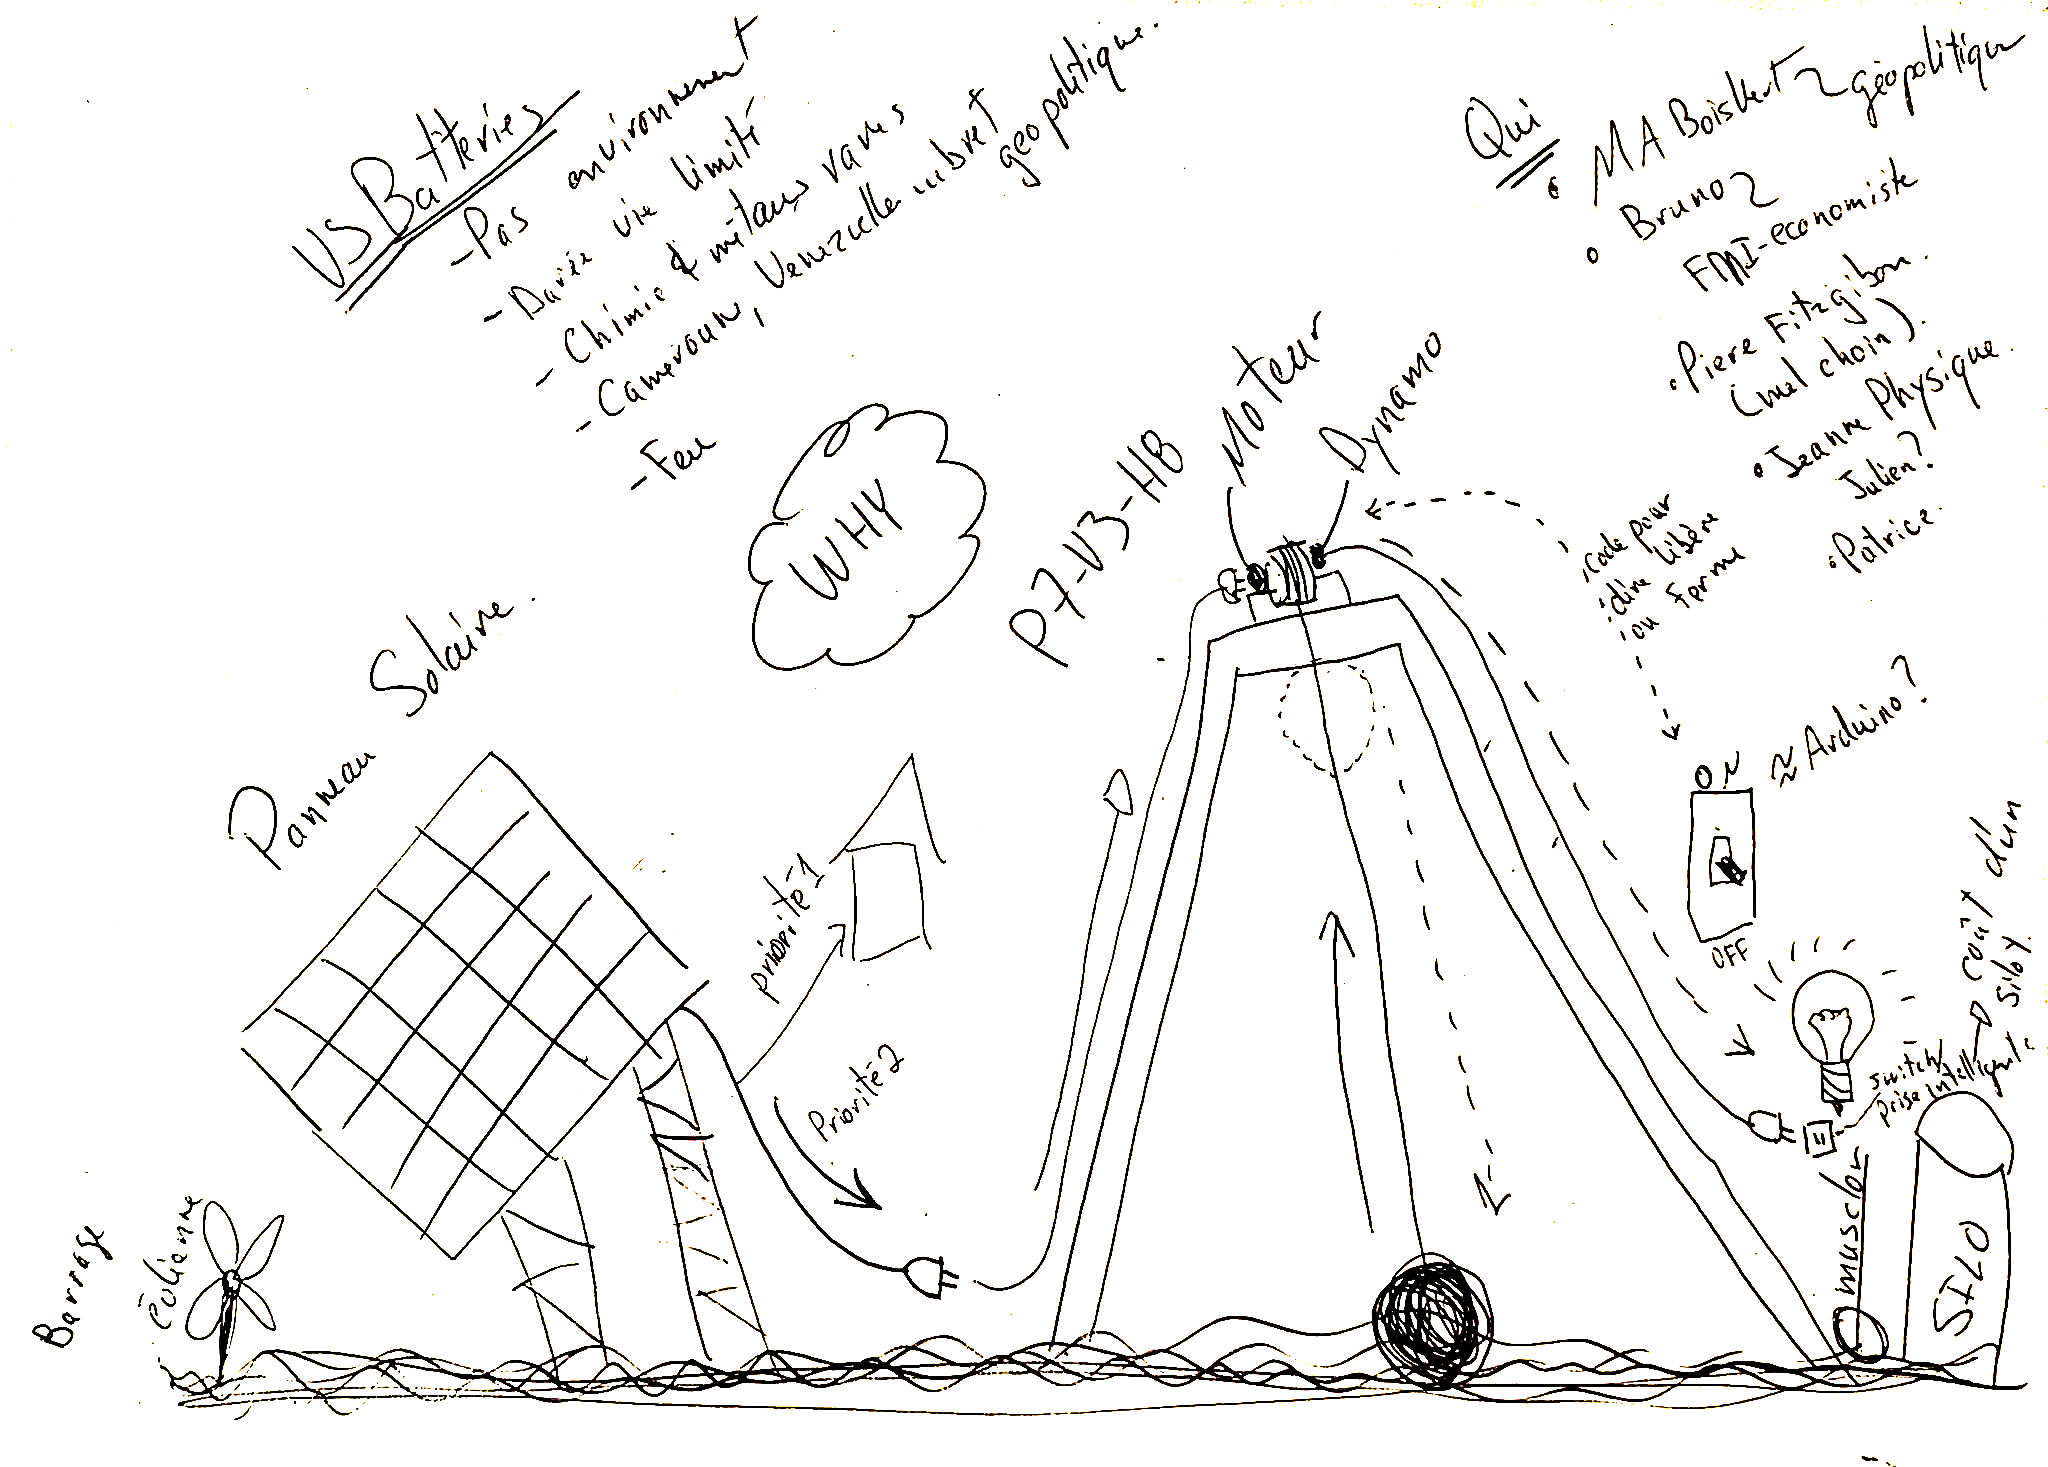 VS Batteries
- Pas environnement
- Durée vie limité
- Chimie & métaux rares
- Cameroune, Venezuelle ... bref
géopolitique.
- Feu
Qui
• MA Boisvert géopolitique
• Bruno
FMI-economiste
• Piere Fitzgibon.
(mel choin).
• Jeanne Physique.
Julien?
• Patrice.
WHY
P7-V3-HB
Moteur
Dynamo
code pour
dire libère
ou Ferme
Panneau Solaire.
priorité 1
Priorité 2
ON
≈ Arduino?
OFF
coût d'un
silo?
switch/
prise intelligente
muscler
SILO
Barrage
éolienne